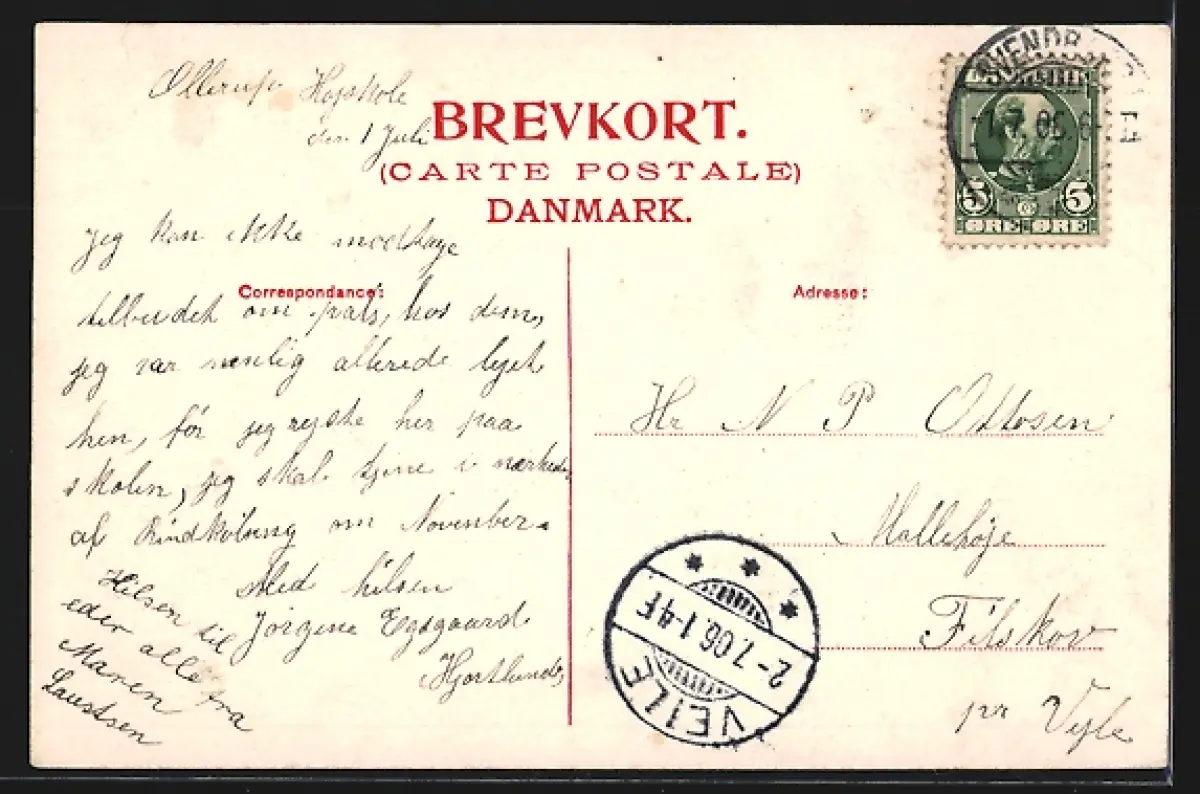 Ollerup Højskole
den 1 Juli
BREVKORT.
(CARTE POSTALE)
DANMARK.
Correspondance:
jeg kan ikke modtage
tilbudet om plads, hos dem,
jeg var nemlig allerede lejet
hen, før jeg rejste her paa
skolen, jeg skal tjene i nærheden
af Rindkøbing om November.
Med hilsen
Jørgine Egsgaard
Hjortlund
Hilsen til
eder alle fra
Maren
Laustsen
DANMARK
5 5
ØRE ØRE
SVENDB
Adresse:
Hr N P Ottosen
Mallehøje
Filskov
pr Vejle
2-7.06.1-4E
VEJLE